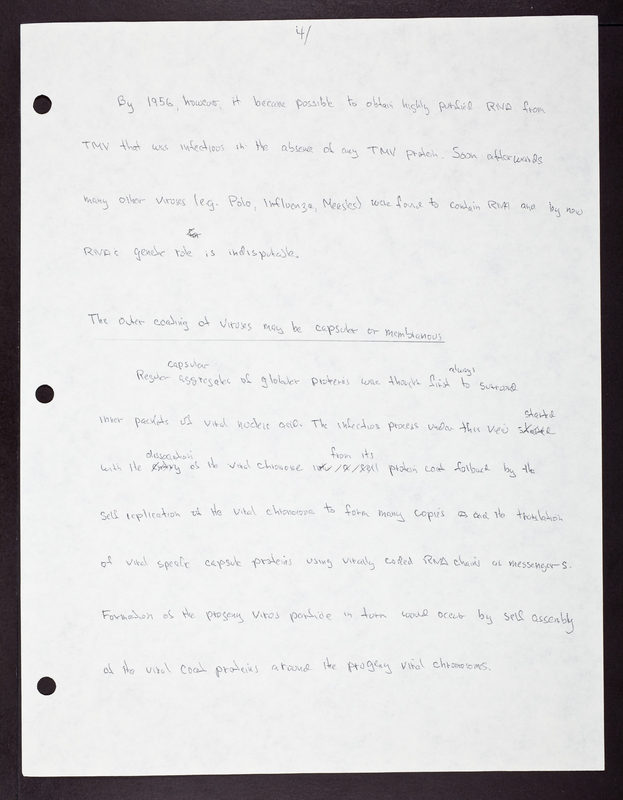 4/
By 1956, however, it became possible to obtain highly purified RNA from
TMV that was infectious in the absence of any TMV protein. Soon afterwards
many other viruses (e.g. Polio, Influenza, Measles) were found to contain RNA and by now
RNA's genetic role is indisputable.
The outer coating of viruses may be capsular or membranous
capsular
Regular aggregates of globular proteins were thought first to surround
always
inner packets of viral nucleic acid. The infectious process under this view started
started
with the entry of the viral chromosome protein coat followed by the
dissociation from its
self replication of the viral chromosome to form many copies and the translation
of viral specific capsule proteins using virally coded RNA chains as messengers.
Formation of the progeny virus particle in turn would occur by self assembly
of the viral coat proteins around the progeny viral chromosomes.